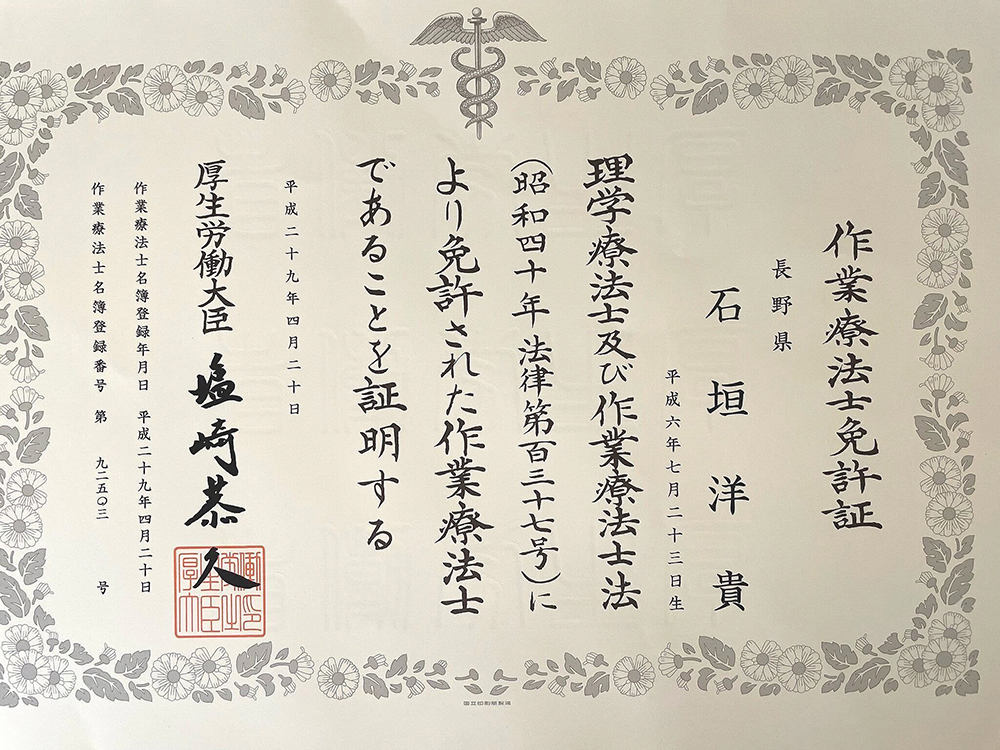 作業療法士免許証
長野県
石垣洋貴
平成六年七月二十三日生
理学療法士及び作業療法士法
(昭和四十年法律第百三十七号)に
より免許された作業療法士
であることを証明する
平成二十九年四月二十日
厚生労働大臣 塩崎恭久
作業療法士名簿登録年月日 平成二十九年四月二十日
作業療法士名簿登録番号 第 九二五〇三 号